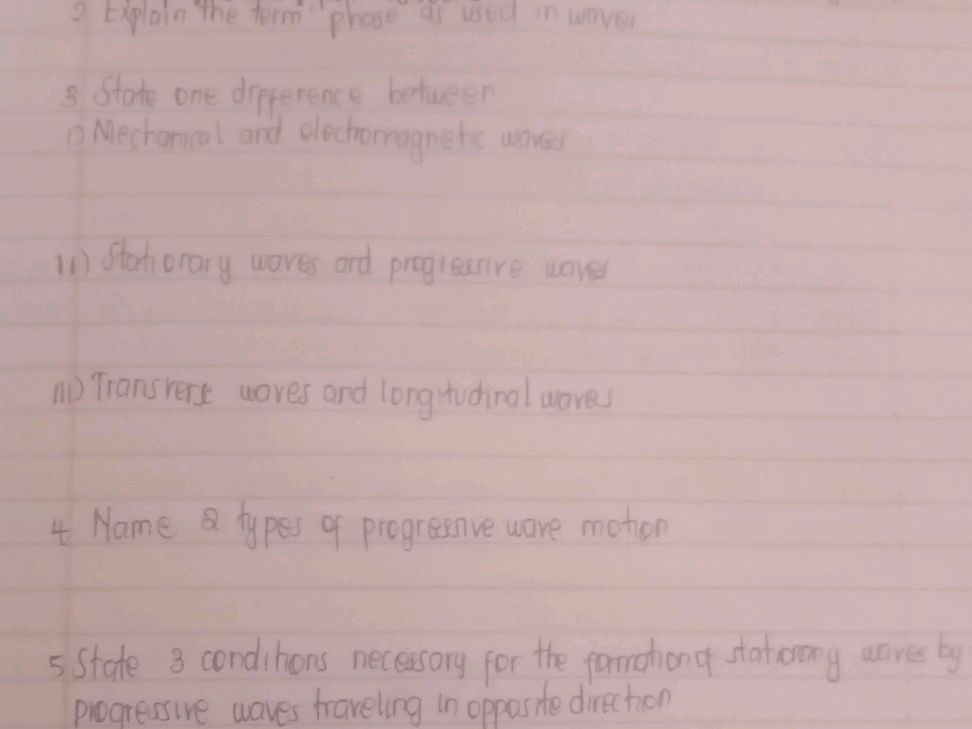 2 Explain the term "phase as used in waves
3 State one difference between
i) Mechanical and electromagnetic waves
ii) Stationary waves and progressive waves
iii) Transverse waves and longitudinal waves
4 Name 2 types of progressive wave motion
5 State 3 conditions necessary for the formation of stationary waves by
progressive waves traveling in opposite direction